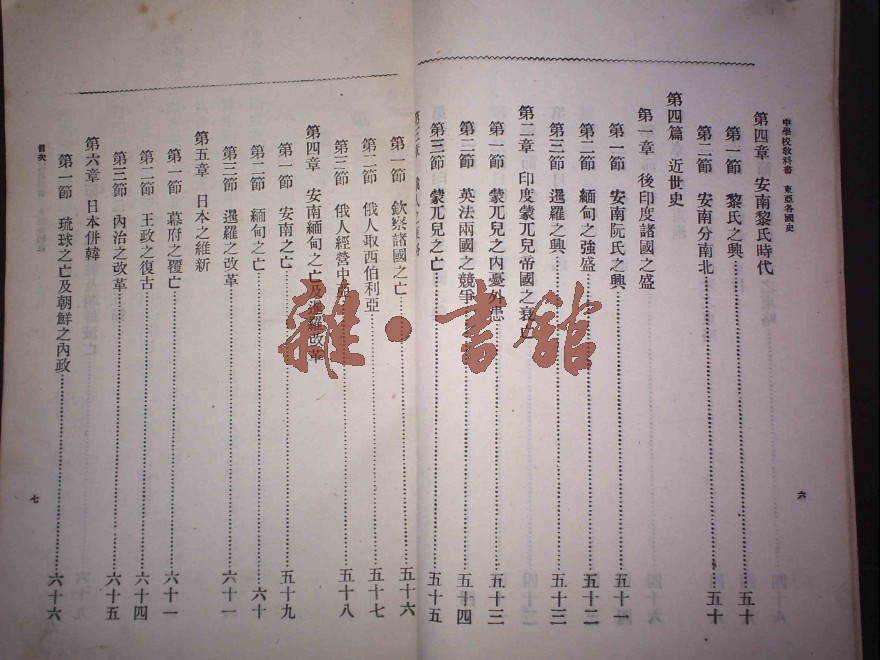 中學校教科書　東亞各國史
第四章　安南黎氏時代
第一節　黎氏之興………五十
第二節　安南分南北………五十
第四篇　近世史
第一章　後印度諸國之盛
第一節　安南阮氏之興………五十一
第二節　緬甸之強盛………五十二
第三節　暹羅之興………五十三
第二章　印度蒙兀兒帝國之衰亡
第一節　蒙兀兒之內憂外患………五十三
第二節　英法兩國之競爭………五十四
第三節　蒙兀兒之亡………五十五
六
第一節　欽察諸國之亡………五十六
第二節　俄人取西伯利亞………五十七
第三節　俄人經營中亞………五十八
第四章　安南緬甸之亡及暹羅改革
第一節　安南之亡………五十九
第二節　緬甸之亡………六十
第三節　暹羅之改革………六十一
第五章　日本之維新
第一節　幕府之覆亡………六十一
第二節　王政之復古………六十四
第三節　內治之改革………六十五
第六章　日本併韓
第一節　琉球之亡及朝鮮之內政………六十六
目次
七
雜·書館